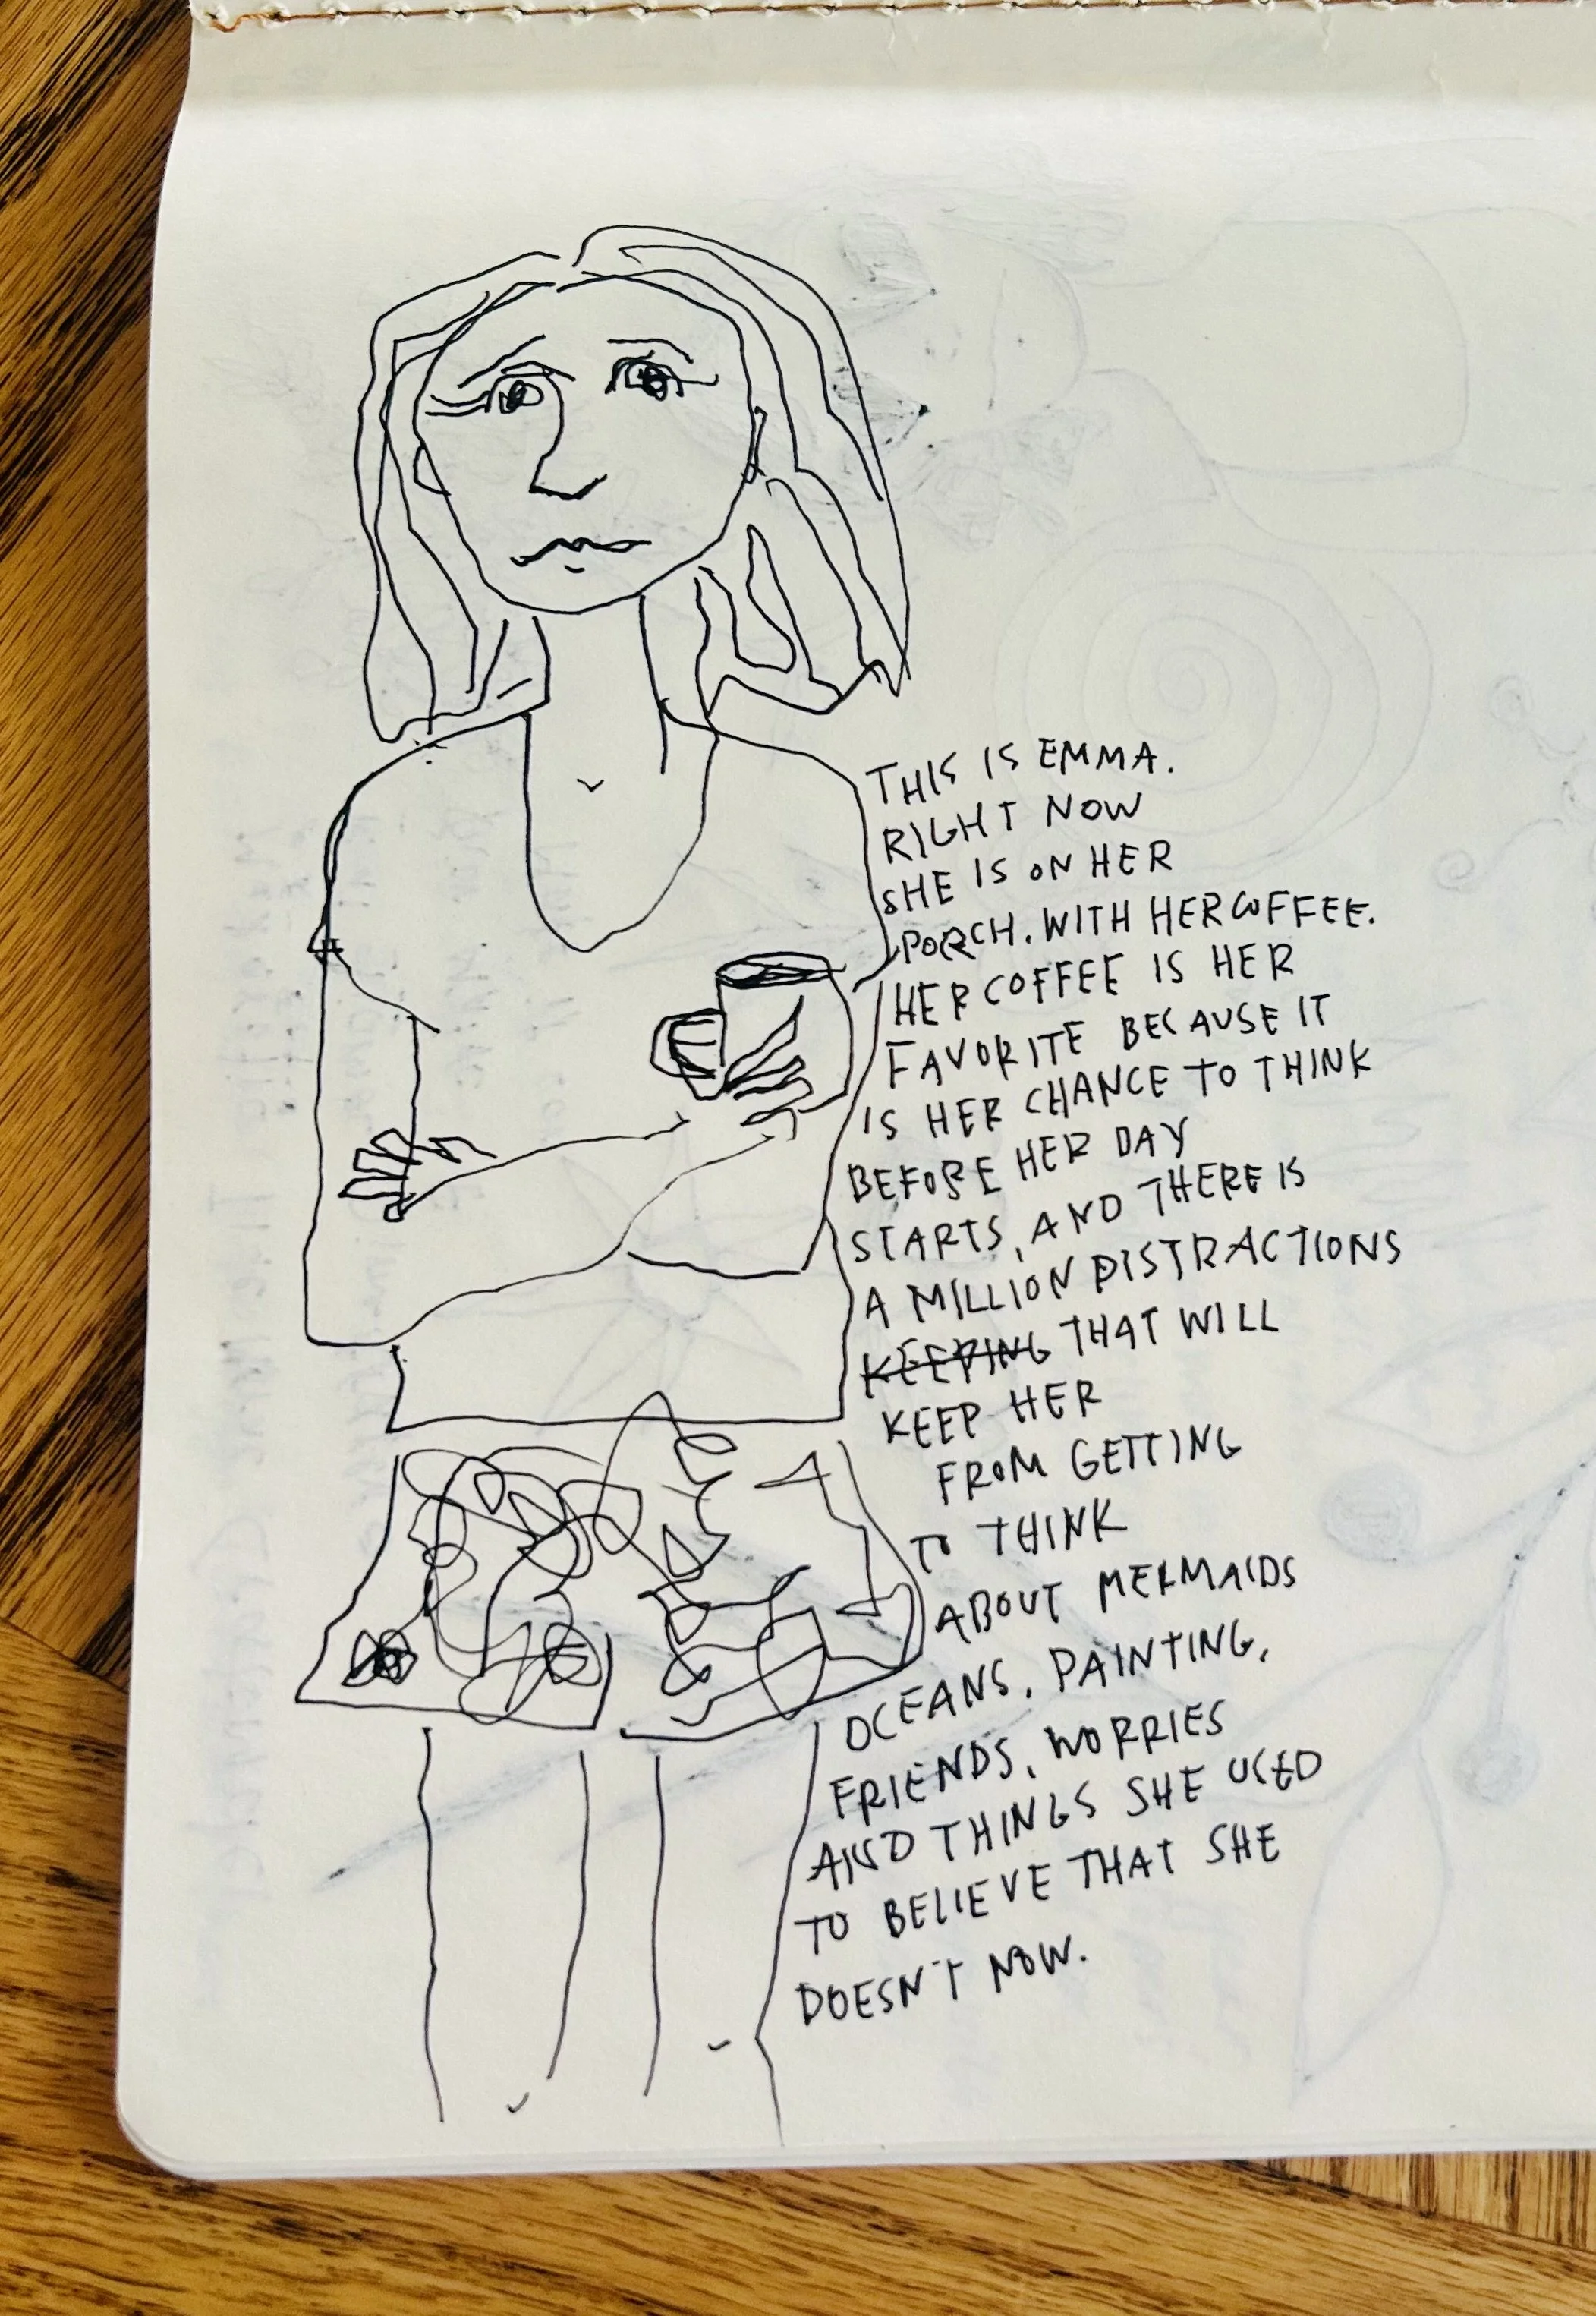 THIS IS EMMA.
RIGHT NOW
SHE IS ON HER
PORCH. WITH HER COFFEE.
HER COFFEE IS HER
FAVORITE BECAUSE IT
IS HER CHANCE TO THINK
BEFORE HER DAY
STARTS, AND THERE IS
A MILLION DISTRACTIONS
KEEPING THAT WILL
KEEP HER
FROM GETTING
TO THINK
ABOUT MERMAIDS
OCEANS, PAINTING,
FRIENDS, WORRIES
AND THINGS SHE USED
TO BELIEVE THAT SHE
DOESN'T NOW.